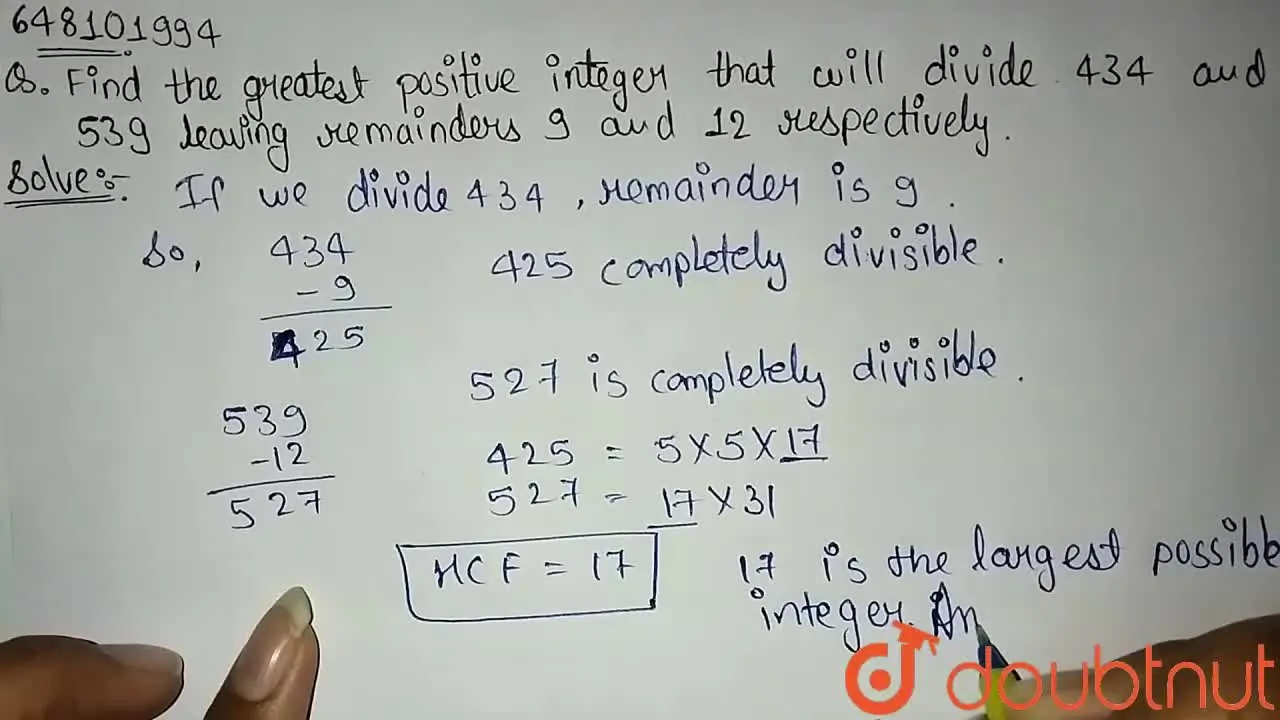 648101994
Q. Find the greatest positive integer that will divide 434 and
539 leaving remainders 9 and 12 respectively.
Solve:-
If we divide 434, remainder is 9.
So, 434
- 9
425
425 completely divisible.
539
-12
527
527 is completely divisible.
425 = 5×5×17
527 = 17×31
HCF = 17
17 is the largest possible
integer. An
doubtnut